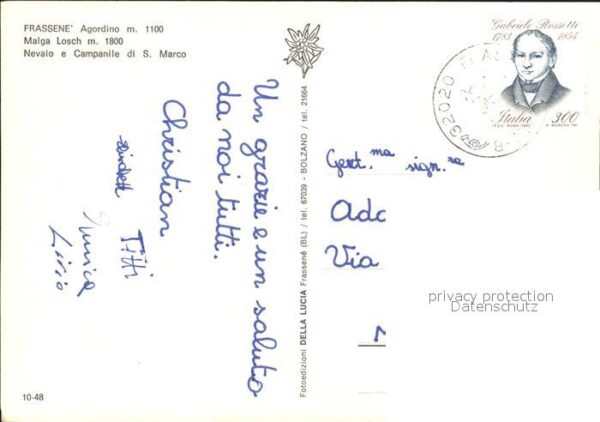 FRASSENE' Agordino m. 1100
Malga Losch m. 1800
Nevaio e Campanile di S. Marco
Un grazie e un saluto
da noi tutti.
Christian
Titti
Livio
10-48
Fotoedizioni DELLA LUCIA Frassenè (BL) / tel. 67039 - BOLZANO / tel. 21664
Gabriele Rossetti
1783 1854
Italia 300
32020
Gent.ma sign.ra
Via
privacy protection
Datenschutz